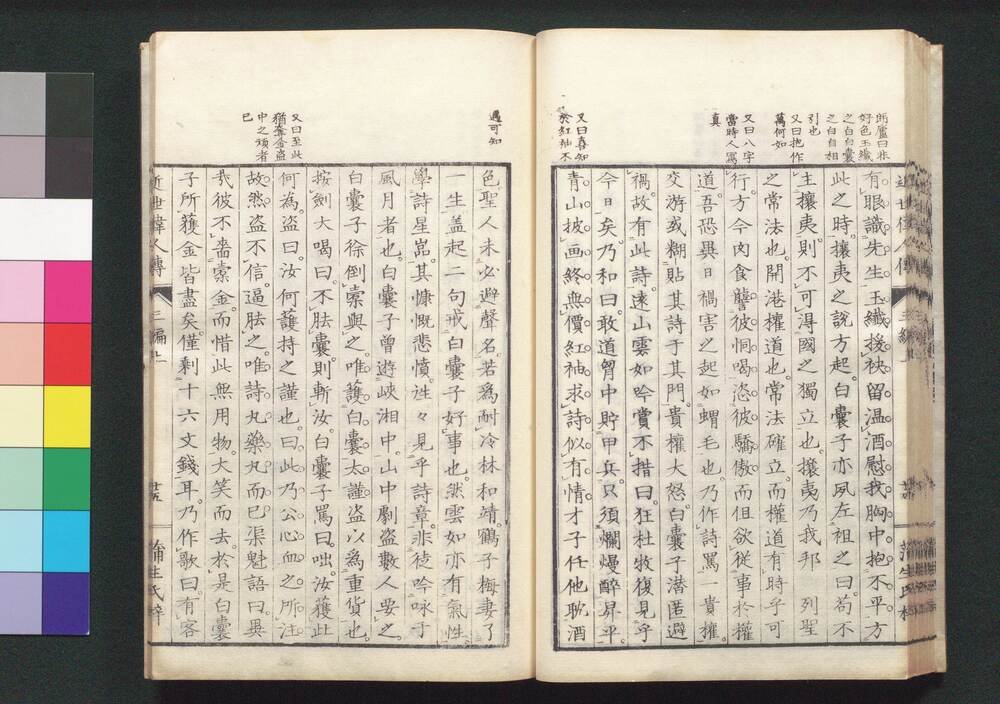 鴎盧曰非
好色玉纖
之白白囊
之白自相
引也
又曰抱作
萬何如
又曰八字
當時人寫
真
又曰喜知
於紅袖不
有眼識先生玉纖援袂留温酒慰我胸中抱不平方
此之時攘夷之說方起白囊子亦夙左袒之曰苟不
主攘夷則不可淂國之獨立也攘夷乃我邦 列聖
之常法也開港權道也常法確立而權道有時乎可
行方今肉食聾彼恫喝恣彼驕傲而但欲從事於權
道吾恐異日禍害之起如蝟毛也乃作詩罵一貴權
交游或糊貼其詩于其門貴權大怒白囊子潜匿避
禍故有此詩遠山雲如吟賞不措曰狂杜牧復見乎
今日矣乃和曰敢道胷中貯甲兵只須爛熳醉昇平
青山披画終無價紅袖求詩似有情才子任他耽酒
遇可知
又曰至此
猶奪金盗
中之頑者
已
色聖人未必避聲名若爲耐冷林和靖鶴子梅妻了
一生盖起二句戒白囊子好事也然雲如亦有氣性
學詩星嵓其慷慨悲憤徃々見乎詩章非徒吟咏于
風月者也白囊子曾遊峽湘中山中劇盗數人要之
白囊子徐倒槖與之唯護白囊太謹盗以爲重貨也
按劍大喝曰不胠囊則斬汝白囊子罵曰咄汝獲此
何爲盗曰汝何護持之謹也曰此乃公心血之所注
故然盗不信逼胠之唯詩丸藥丸而已渠魁語曰異
哉彼不嗇槖金而惜此無用物大笑而去於是白囊
子所獲金皆盡矣僅剩十六文錢耳乃作歌曰有客
近世偉人傳 三編上 廿五 蒲生氏梓